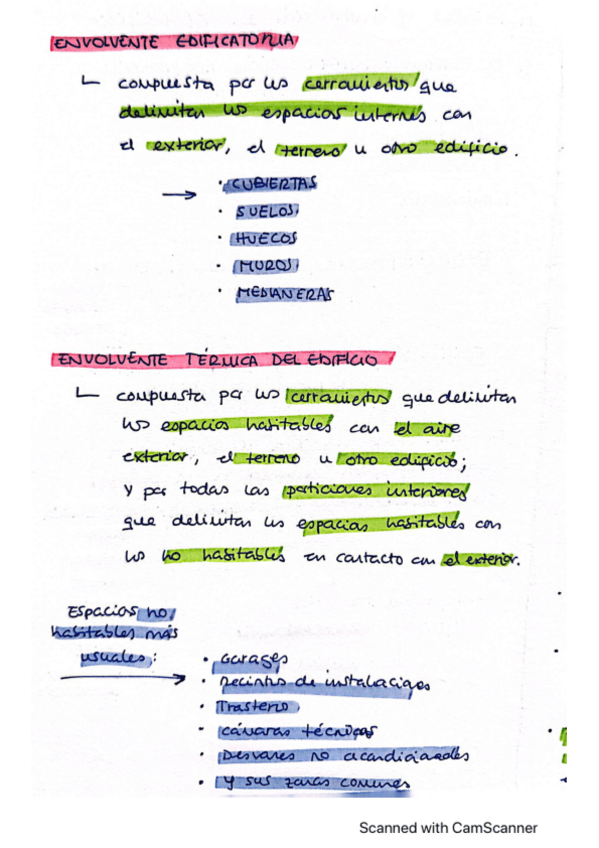 ENVOLVENTE EDIFICATORIA
compuesta por los cerramientos que
delimitan los espacios internos con
el exterior, el terreno u otro edificio.
· CUBIERTAS
· SUELOS
· HUECOS
· MUROS
· MEDIANERAS
ENVOLVENTE TÉRMICA DEL EDIFICIO
compuesta por los cerramientos que delimitan
los espacios habitables con el aire
exterior, el terreno u otro edificio;
y por todas las particiones interiores
que delimitan los espacios habitables con
los no habitables en contacto con el exterior.
Espacios no
habitables más
usuales:
· Garages
· Recintos de instalaciones
· Trastero
· cámaras técnicas
· Desvanes no acondicionados
· Y sus zonas comunes
Scanned with CamScanner